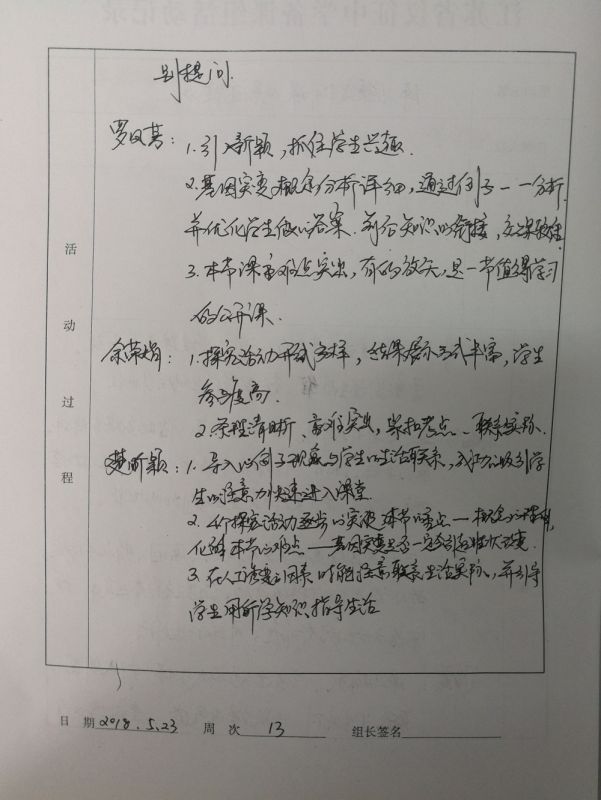 别提问.
罗      : 1.引入新颖，抓住学生兴趣.
2.基因突变概念分析详细，通过例子一一分析.
并优化学生做的答案.前后知识的衔接，
3.本节课重难点突出，有的放矢，是一节值得学习
的公开课.
余荣娟: 1.探究活动形式多样，结果展示方式丰富，学生
参与度高.
2.条理清晰、重难突出，紧扣考点、联系实际.
楚昕颖: 1.导入的例子现象与学生的生活联系，成功吸引学
生的注意力快速进入课堂.
2.4个探究活动逐步的突破本节的重点——概念的理解，
化解本节的难点——基因突变是否一定会引起性状改变.
3.在人工诱变的因素时能注意联系生活实际，并引导
学生用所学知识指导生活
活动过程
日 期 2018.5.23 周 次 13 组长签名